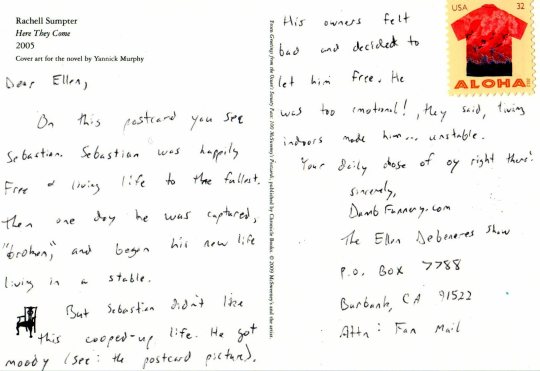 Rachell Sumpter
Here They Come
2005
Cover art for the novel by Yannick Murphy
Dear Ellen,
On this postcard you see
Sebastian. Sebastian was happily
Free & living life to the fullest.
Then one day he was captured,
"broken," and began his new life
living in a stable.
But Sebastian didn't like
this cooped-up life. He got
moody (see: the postcard picture).
From Greetings from the Ocean's Sweaty Face: 100 McSweeney's Postcards, published by Chronicle Books. © 2009 McSweeney's and the artist.
His owners felt
bad and decided to
let him free. He
was too emotional!, they said, living
indoors made him... unstable.
Your daily dose of oy right there!
sincerely,
DambFunnery.com
The Ellen Degeneres Show
P.O. Box 7788
Burbank, CA 91522
Attn: Fan Mail
USA 32
ALOHA